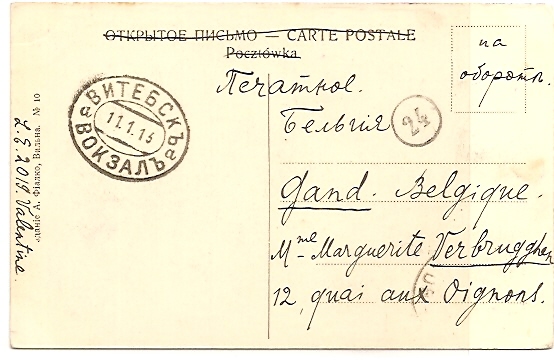 ОТКРЫТОЕ ПИСЬМО — CARTE POSTALE
Pocztówka
на
оборотѣ.
Печатное.
Бельгія
24
ВИТЕБСКЪ
11.1.15
ВОКЗАЛЪ
Gand. Belgique.
Mme Marguerite Verbrugghen
12, quai aux Oignons.
А. Фіалко, Вильна. № 10
2019 Valentine.